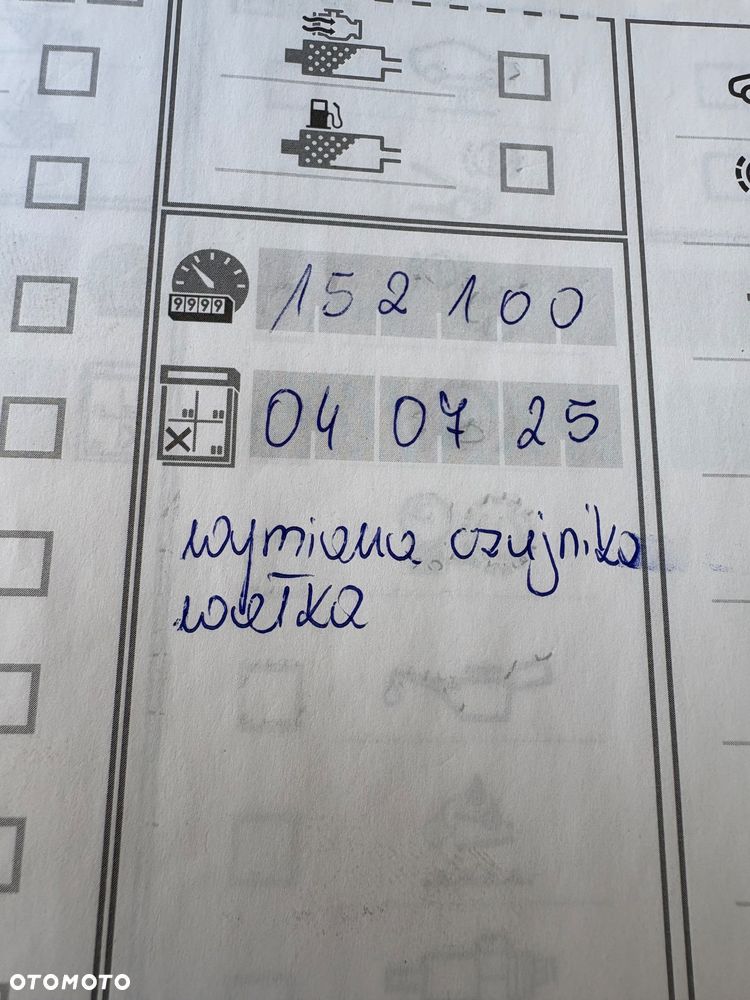 9999
152 100
04 07 25
wymiana czujnika
wałka
OTOMOTO